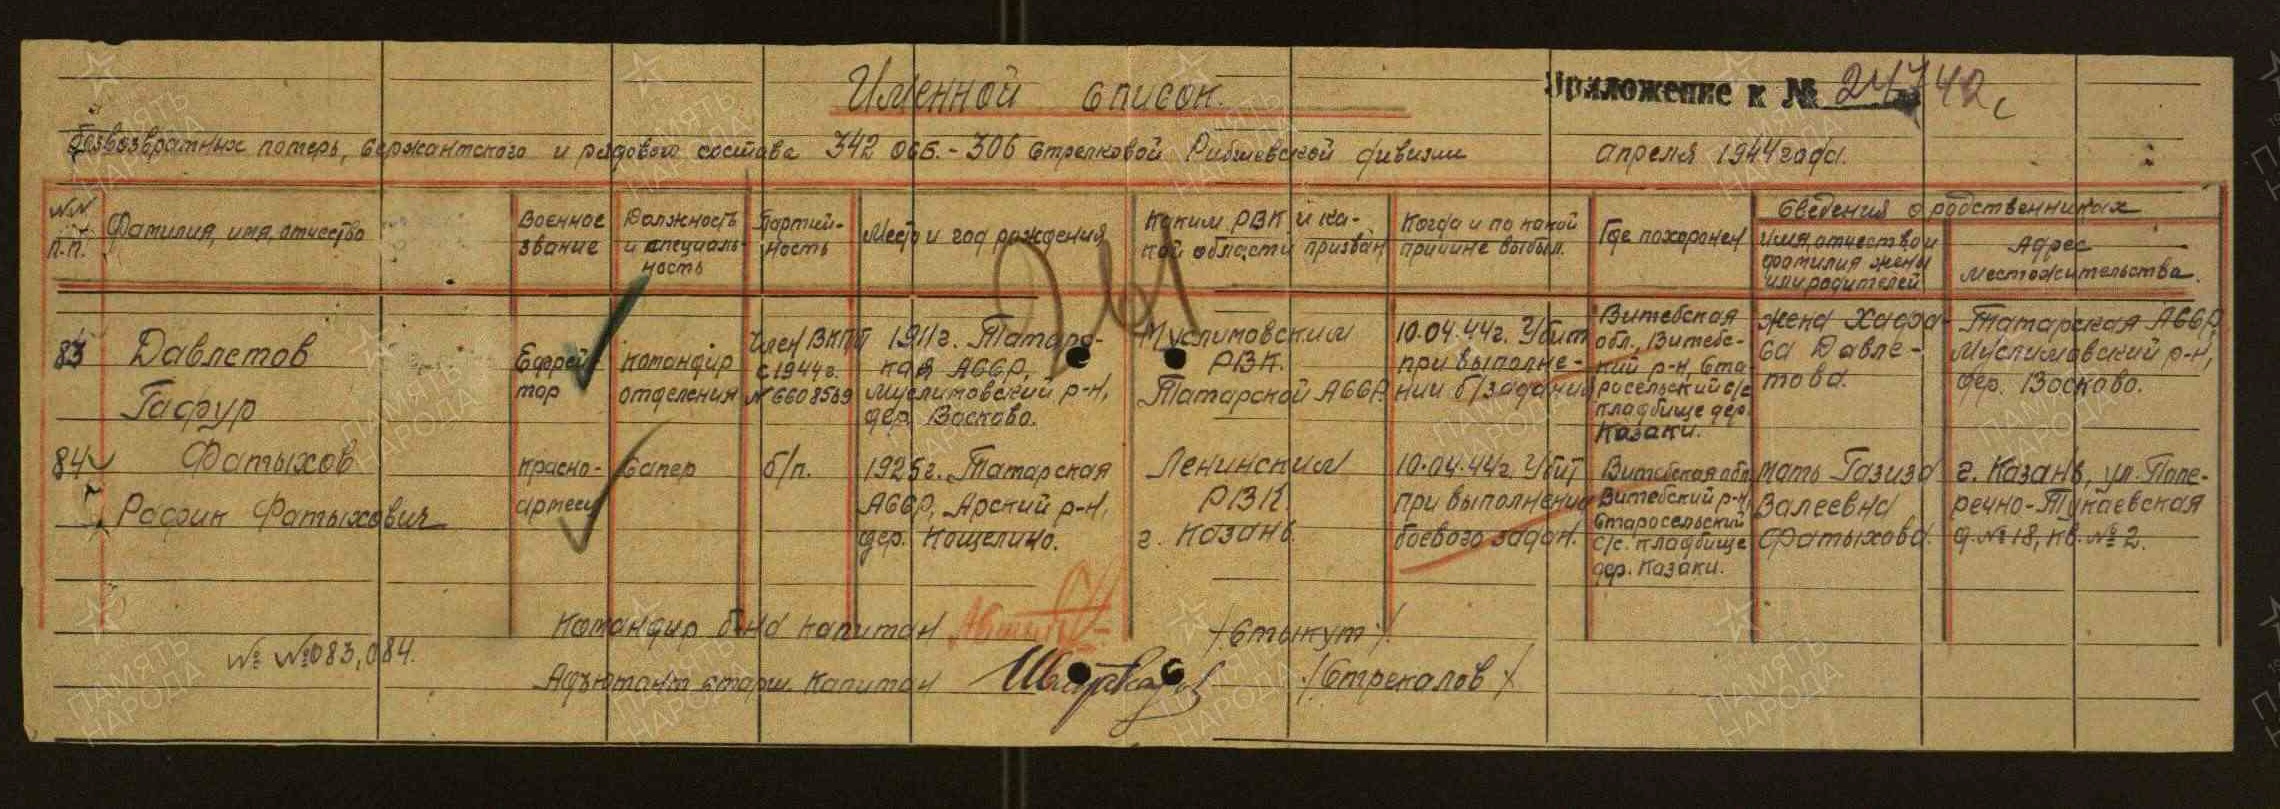 Именной список.
Приложение к № 24742с
безвозвратных потерь, сержантского и рядового состава 342 ОСБ. - 306 Стрелковой Рибшевской дивизии апреля 1944 года.
№№ п.п.
Фамилия, имя, отчество
Военное звание
Должность и специальность
Партийность
Место и год рождения
Каким РВК и какой области призван
Когда и по какой причине выбыл.
Где похоронен
Сведения о родственниках
Имя, отчество и фамилия жены или родителей
Адрес местожительства.
261
83
Давлетов
Гафур
Ефрейтор
Командир отделения
Член ВКПб с 1944г. № 6608569
1911г. Татарская АССР, Муслимовский р-н, дер. Восково.
Муслимовским РВК. Татарской АССР.
10.04.44г. Убит при выполнении б/задания
Витебская обл., Витебский р-н, Старосельский с/с кладбище дер. Казаки.
жена Хафаса Давлетова.
Татарская АССР, Муслимовский р-н, дер. Восково.
84
Фатыхов
Рафик Фатыхович
Красноармеец
Сапер
б/п.
1925г. Татарская АССР, Арский р-н, дер. Кощелино.
Ленинским РВК. г. Казань.
10.04.44г. Убит при выполнении боевого задан.
Витебская обл. Витебский р-н, Старосельский с/с. кладбище дер. Казаки.
мать Газиза Валеевна Фатыхова.
г. Казань, ул. Поперечно-Тукаевская д. № 18, кв. № 2.
Командир б-на капитан /Стыкут/.
№ № 083, 084.
Адъютант старш. капитан /Стрекалов/
ПАМЯТЬ НАРОДА